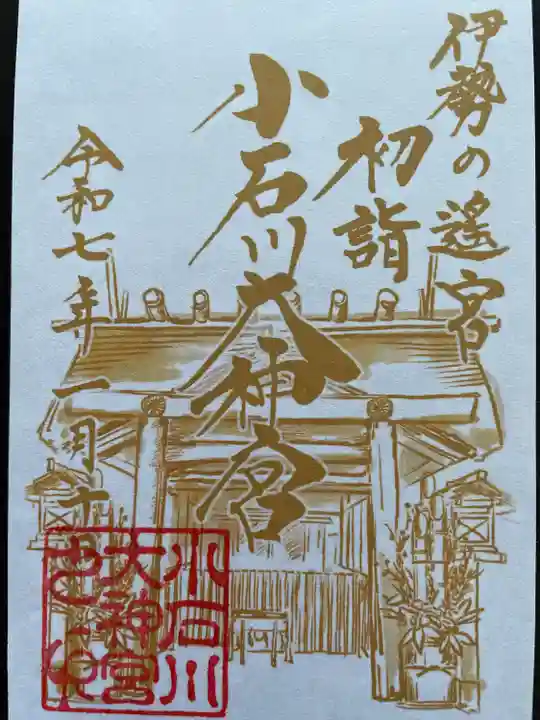 伊勢の遥宮
初詣
小石川大神宮
令和七年一月十
小石川
大神宮